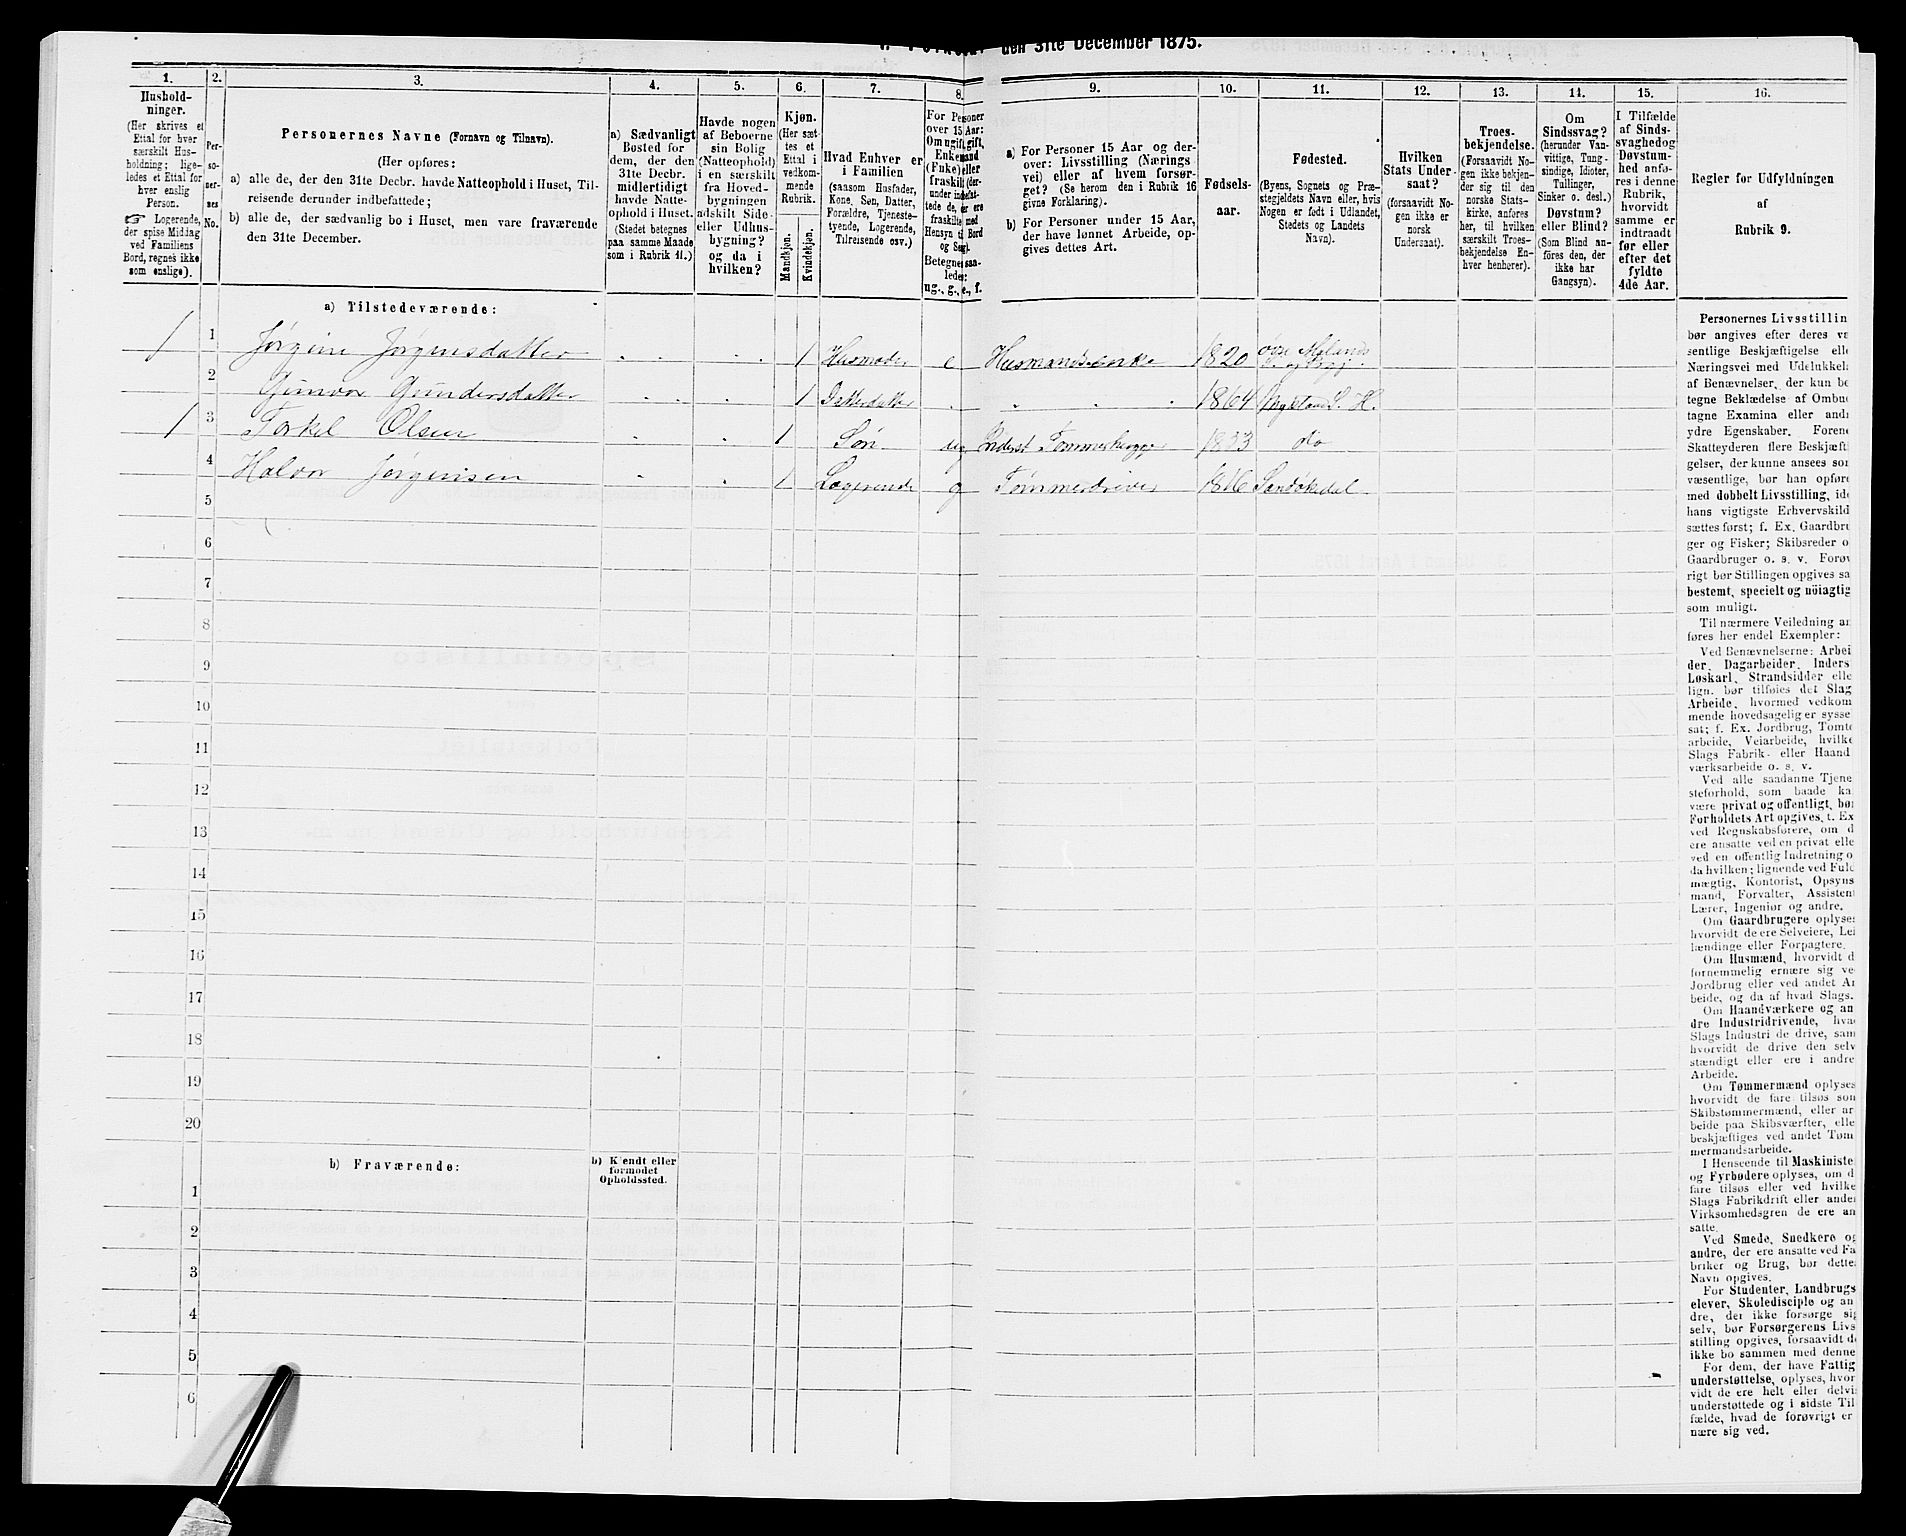 den 31te December 1875.
1.
Hushold-
ninger.
(Her skrives et
Ettal for hver
særskilt Hus-
holdning; lige-
ledes et Ettal for
hver enslig
Person.
☞ Logerende,
der spise Middag
ved Familiens
Bord, regnes ikke
som enslige).
2.
Per-
so-
ner-
nes
No.
3.
Personernes Navne (Fornavn og Tilnavn).
(Her opføres:
a) alle de, der den 31te Decbr. havde Natteophold i Huset, Til-
reisende derunder indbefattede;
b) alle de, der sædvanlig bo i Huset, men vare fraværende
den 31te December.
4.
a) Sædvanligt
Bosted for
dem, der den
31te Decbr.
midlertidigt
havde Natte-
ophold i Huset.
(Stedet betegnes
paa samme Maade
som i Rubrik 11.)
5.
Havde nogen
af Beboerne
sin Bolig
(Natteophold)
i en særskilt
fra Hoved-
bygningen
adskilt Side-
eller Udhus-
bygning?
og da i
hvilken?
6.
Kjøn.
(Her sæt-
tes et
Ettal i
vedkom-
mende
Rubrik.
Mandkjøn.
Kvindekjøn.
7.
Hvad Enhver er
i Familien
(saasom Husfader,
Kone, Søn, Datter,
Forældre, Tjeneste-
tyende, Logerende,
Tilreisende osv.)
8.
For Personer
over 15 Aar:
Om ugift, gift,
Enkemand
(Enke) eller
fraskilt (der-
under indbefat-
tede de, der ere
fraskilte med
Hensyn til Bord
og Seng).
Betegnes saa-
ledes:
ug., g., e., f.
9.
a) For Personer 15 Aar og der-
over: Livsstilling (Nærings
vei) eller af hvem forsør-
get? (Se herom den i Rubrik 16
givne Forklaring).
b) For Personer under 15 Aar,
der have lønnet Arbeide, op-
gives dettes Art.
10.
Fødsels-
aar.
11.
Fødested.
(Byens, Sognets og Præ-
stegjeldets Navn eller, hvis
Nogen er født i Udlandet,
Stedets og Landets
Navn).
12.
Hvilken
Stats Under-
saat?
(forsaavidt No-
gen ikke er
norsk
Undersaat).
13.
Troes-
bekjendelse.
(Forsaavidt No-
gen ikke bekjen-
der sig til den
norske Stats-
kirke, anføres
her, til hvilken
særskilt Troes-
bekjendelse En-
hver henhører).
14.
Om
Sindssvag?
(herunder Van-
vittige, Tung-
sindige, Idioter,
Tullinger,
Sinker o. desl.)
Døvstum?
eller Blind?
(Som Blind an-
føres den, der
ikke har
Gangsyn).
15.
I Tilfælde
af Sinds-
svaghed og
Døvstum-
hed anfø-
res i denne
Rubrik,
hvorvidt
samme er
indtraadt
før eller
efter det
fyldte
4de Aar.
16.
Regler for Udfyldningen
af
Rubrik 9.
a) Tilstedeværende:
1 1 Jørgine Jørgensdatter 1 Husmoder e Husmandsenke 1820
2 Gunvor Gundersdatter 1 Datterdatter 1864
1 3 Torkel Olsen 1 Søn ug 1853 do
4 Halvor Jørgensen 1 Logerende g Tømmerdriver 1816 Sandøkedal
5
6
7
8
9
10
11
12
13
14
15
16
17
18
19
20
b) Fraværende:
b) Kjendt eller
formodet
Opholdssted.
1
2
3
4
5
6
Personernes Livsstillin
bør angives efter deres væ
sentlige Beskjæftigelse elle
Næringsvei med Udelukkels
af Benævnelser, der kun be
tegne Beklædelse af Ombu
tagne Examina eller andr
ydre Egenskaber. Forene
Skatteyderen flere Beskjæft
gelser, der kunne ansees som
væsentlige, bør han opføre
med dobbelt Livsstilling, ide
hans vigtigste Erhvervskild
sættes først; f. Ex. Gaardbru
ger og Fisker; Skibsreder o
Gaardbruger o. s. v. Forøv
rigt bør Stillingen opgives sa
bestemt, specielt og nöiagtig
som muligt.
Til nærmere Veiledning an
føres her endel Exempler:
Ved Benævnelserne: Arbei
der, Dagarbeider, Inders
Løskarl, Strandsidder elle
lign. bør tilføies det Slag
Arbeide, hvormed vedkom
mende hovedsagelig er syssel
sat; f. Ex. Jordbrug, Tomte
arbeide, Veiarbeide, hvilke
Slags Fabrik- eller Haand
værksarbeide o. s. v.
Ved alle saadanne Tjene
steforhold, som baade ka
være privat og offentligt, bør
Forholdets Art opgives, t. Ex
ved Regnskabsførere, om d
ere ansatte ved en privat elle
ved en offentlig Indretning o
da hvilken; lignende ved Fuld
mægtig, Kontorist, Opsyns
mand, Forvalter, Assistent
Lærer, Ingeniør og andre.
Om Gaardbrugere oplyses
hvorvidt de ere Selveiere, Lei
lændinge eller Forpagtere.
Om Husmænd, hvorvidt d
fornemmelig ernære sig ve
Jordbrug eller ved andet Ar
beide, og da af hvad Slags.
Om Haandværkere og an
dre Industridrivende, hvad
Slags Industri de drive, sam
hvorvidt de drive den selv
stændigt eller ere i andre
Arbeide.
Om Tømmermænd oplyses
hvorvidt de fare tilsøs som
Skibstømmermænd, eller ar
beide paa Skibsværfter, elle
beskjæftiges ved andet Tøm
mermandsarbeide.
I Henseende til Maskiniste
og Fyrbødere oplyses, om d
fare tilsøs eller ved hvilke
Slags Fabrikdrift eller anden
Virksomhedsgren de ere an
satte.
Ved Smede, Snedkere og
andre, der ere ansatte ved Fa
briker og Brug, bør dettes
Navn opgives.
For Studenter, Landbrugs
elever, Skoledisciple og an
dre, der ikke forsørge sig
selv, bør Forsørgerens Livs
stilling opgives, forsaavidt de
ikke bo sammen med denne
For dem, der have Fattig
understøttelse, oplyses, hvor
vidt de ere helt eller delvis
understøttede og i sidste Til
fælde, hvad de forøvrigt er
nære sig ved.